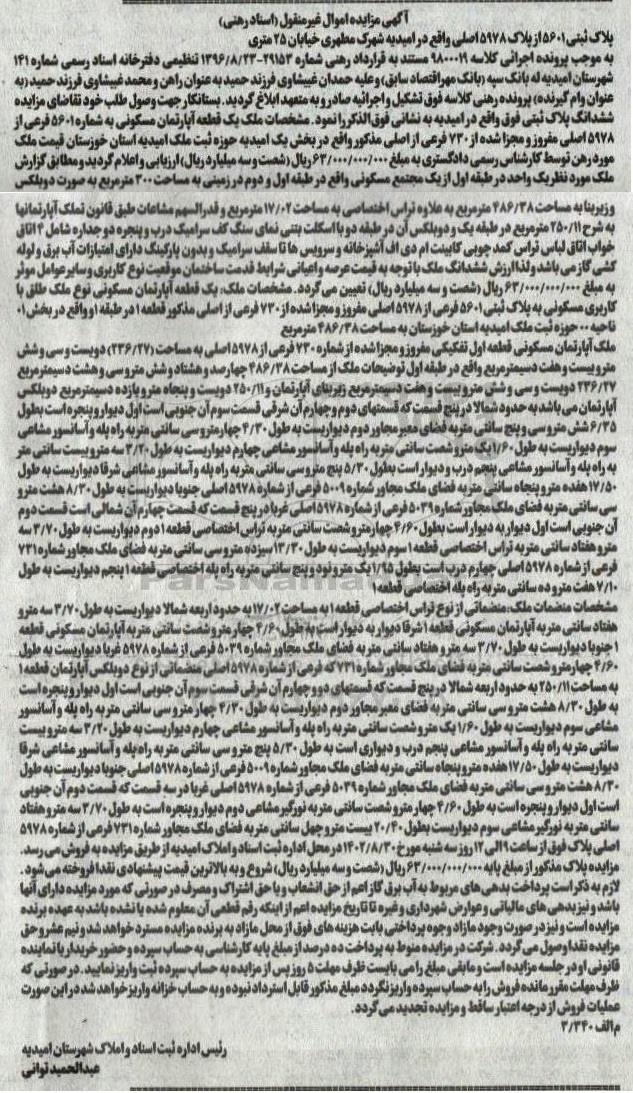 آگهی مزایده اموال غیرمنقول (اسناد رهنی)
پلاک ثبتی ۵۶۰۱ از پلاک ۵۹۷۸ اصلی واقع در امیدیه شهرک مطهری خیابان ۲۵ متری
به موجب پرونده اجرائی کلاسه ۹۸۰۰۰۱۹ مستند به قرارداد رهنی شماره ۲۹۱۵۳-۱۳۹۶/۸/۲۳ تنظیمی دفترخانه اسناد رسمی شماره ۱۴۱
شهرستان امیدیه له بانک سپه (بانک مهر اقتصاد سابق) و علیه حمدان غبیشاوی فرزند حمید به عنوان راهن و محمد غبیشاوی فرزند حمید (به
عنوان وام گیرنده) پرونده رهنی کلاسه فوق تشکیل و اجرائیه صادر و به متعهد ابلاغ گردید. بستانکار جهت وصول طلب خود تقاضای مزایده
ششدانگ پلاک ثبتی فوق واقع در امیدیه به نشانی فوق الذکر را نمود. مشخصات ملک یک قطعه آپارتمان مسکونی به شماره ۵۶۰۱ فرعی از
۵۹۷۸ اصلی مفروز و مجزا شده از ۷۳۰ فرعی از اصلی مذکور واقع در بخش یک امیدیه حوزه ثبت ملک امیدیه استان خوزستان قیمت ملک
مورد رهن توسط کارشناس رسمی دادگستری به مبلغ ۶۳/۰۰۰/۰۰۰/۰۰۰ ریال (شصت و سه میلیارد ریال) ارزیابی و اعلام گردید و مطابق گزارش
ملک مورد نظر یک واحد در طبقه اول از یک مجتمع مسکونی واقع در طبقه اول و دوم در زمینی به مساحت ۳۰۰ مترمربع به صورت دوبلکس
و زیربنا به مساحت ۴۸۶/۳۸ مترمربع به علاوه تراس اختصاصی به مساحت ۱۷/۰۲ مترمربع و قدرالسهم مشاعات طبق قانون تملک آپارتمانها
به شرح ۲۵۰/۱۱ مترمربع در طبقه یک و دوبلکس آن در طبقه دو با اسکلت بتنی نمای سنگ کف سرامیک درب و پنجره دو جداره شامل ۴ اتاق
خواب اتاق لباس تراس کمد چوبی کابینت ام دی اف آشپزخانه و سرویس ها تا سقف سرامیک و بدون پارکینگ دارای امتیازات آب برق و لوله
کشی گاز می باشد ولذا ارزش ششدانگ ملک با توجه به قیمت عرصه و اعیانی شرایط قدمت ساختمان موقعیت نوع کاربری و سایر عوامل موثر
به مبلغ ۶۳/۰۰۰/۰۰۰/۰۰۰ ریال (شصت و سه میلیارد ریال) تعیین می گردد. مشخصات ملک: یک قطعه آپارتمان مسکونی نوع ملک طلق با
کاربری مسکونی به پلاک ثبتی ۵۶۰۱ فرعی از ۵۹۷۸ اصلی مفروز و مجزا شده از ۷۳۰ فرعی از اصلی مذکور قطعه ۱ در طبقه ۱ و واقع در بخش ۰۱
ناحیه ۰۰ حوزه ثبت ملک امیدیه استان خوزستان به مساحت ۴۸۶/۳۸ مترمربع
ملک آپارتمان مسکونی قطعه اول تفکیکی مفروز و مجزا شده از شماره ۷۳۰ فرعی از ۵۹۷۸ اصلی به مساحت (۲۳۶/۲۷) دویست و سی و شش
متر و بیست و هفت دسیمترمربع واقع در طبقه اول توضیحات ملک از مساحت ۴۸۶/۳۸ چهارصد و هشتاد و شش متر و سی و هشت دسیمترمربع
۲۳۶/۲۷ دویست و سی و شش متر و بیست و هفت دسیمترمربع زیربنای آپارتمان و ۲۵۰/۱۱ دویست و پنجاه متر و یازده دسیمترمربع دوبلکس
آپارتمان می باشد به حدود شمالا در پنج قسمت که قسمتهای دوم و چهارم آن شرقی قسمت سوم آن جنوبی است اول دیوار و پنجره است بطول
۶/۳۵ شش متر و سی و پنج سانتی متر به فضای معبر مجاور دوم دیواریست به طول ۴/۳۰ چهار متر و سی سانتی متر به راه پله و آسانسور مشاعی
سوم دیواریست به طول ۱/۶۰ یک متر و شصت سانتی متر به راه پله و آسانسور مشاعی چهارم دیواریست به طول ۳/۲۰ سه متر و بیست سانتی متر
به راه پله و آسانسور مشاعی پنجم درب و دیوار است بطول ۵/۳۰ پنج متر و سی سانتی متر به راه پله و آسانسور مشاعی شرقا دیواریست به طول
۱۷/۵۰ هفده متر و پنجاه سانتی متر به فضای ملک مجاور شماره ۵۰۰۹ فرعی از شماره ۵۹۷۸ اصلی جنوبا دیواریست به طول ۸/۳۰ هشت متر و
سی سانتی متر به فضای ملک مجاور شماره ۵۰۳۹ فرعی از شماره ۵۹۷۸ اصلی غربا در پنج قسمت که قسمت چهارم آن شمالی است قسمت دوم
آن جنوبی است اول دیوار به دیوار است بطول ۴/۶۰ چهار متر و شصت سانتی متر به تراس اختصاصی قطعه ۱ دوم دیواریست به طول ۳/۷۰ سه
متر و هفتاد سانتی متر به تراس اختصاصی قطعه ۱ سوم دیواریست به طول ۱۳/۳۰ سیزده متر و سی سانتی متر به فضای ملک مجاور شماره ۷۳۱
فرعی از شماره ۵۹۷۸ اصلی چهارم درب است بطول ۱/۹۵ یک متر و نود و پنج سانتی متر به راه پله اختصاصی قطعه ۱ پنجم دیواریست به طول
۷/۱۰ هفت متر و ده سانتی متر به راه پله اختصاصی قطعه ۱
مشخصات منضمات ملک: منضماتی از نوع تراس اختصاصی قطعه ۱ به مساحت ۱۷/۰۲ به حدود اربعه شمالا دیواریست به طول ۳/۷۰ سه متر و
هفتاد سانتی متر به آپارتمان مسکونی قطعه ۱ شرقا دیوار به دیوار است به طول ۴/۶۰ چهار متر و شصت سانتی متر به آپارتمان مسکونی قطعه
۱ جنوبا دیواریست به طول ۳/۷۰ سه متر و هفتاد سانتی متر به فضای ملک مجاور شماره ۵۰۳۹ فرعی از شماره ۵۹۷۸ غربا دیواریست به طول
۴/۶۰ چهار متر و شصت سانتی متر به فضای ملک مجاور شماره ۷۳۱ که فرعی از شماره ۵۹۷۸ اصلی منضماتی از نوع دوبلکس آپارتمان قطعه ۱
به مساحت ۲۵۰/۱۱ به حدود اربعه شمالا در پنج قسمت که قسمتهای دو و چهارم آن شرقی قسمت سوم آن جنوبی است اول دیوار و پنجره است
به طول ۸/۳۰ هشت متر و سی سانتی متر به فضای معبر مجاور دوم دیواریست به طول ۴/۳۰ چهار متر و سی سانتی متر به راه پله و آسانسور
مشاعی سوم دیواریست به طول ۱/۶۰ یک متر و شصت سانتی متر به راه پله و آسانسور مشاعی چهارم دیواریست به طول ۳/۲۰ سه متر و بیست
سانتی متر به راه پله و آسانسور مشاعی پنجم درب و دیواری است به طول ۵/۳۰ پنج متر و سی سانتی متر به راه پله و آسانسور مشاعی شرقا
دیواریست به طول ۱۷/۵۰ هفده متر و پنجاه سانتی متر به فضای ملک مجاور شماره ۵۰۰۹ فرعی از شماره ۵۹۷۸ اصلی جنوبا دیواریست به طول
۸/۳۰ هشت متر و سی سانتی متر به فضای ملک مجاور شماره ۵۰۳۹ فرعی از شماره ۵۹۷۸ اصلی غربا در سه قسمت که قسمت دوم آن جنوبی
است اول دیوار و پنجره است به طول ۴/۶۰ چهار متر و شصت سانتی متر به نورگیر مشاعی دوم دیوار و پنجره است به طول ۳/۷۰ سه متر و هفتاد
سانتی متر به نورگیر مشاعی سوم دیواریست بطول ۲۰/۴۰ بیست متر و چهل سانتی متر به فضای ملک مجاور شماره ۷۳۱ فرعی از شماره ۵۹۷۸
اصلی پلاک فوق از ساعت ۹ الی ۱۲ روز سه شنبه مورخ ۱۴۰۲/۸/۳۰ در محل اداره ثبت اسناد و املاک امیدیه از طریق مزایده به فروش می رسد.
مزایده پلاک مذکور از مبلغ پایه ۶۳/۰۰۰/۰۰۰/۰۰۰ ریال (شصت و سه میلیارد ریال) شروع و به بالاترین قیمت پیشنهادی نقدا فروخته می شود.
لازم به ذکر است پرداخت بدهی های مربوط به آب برق گاز اعم از حق انشعاب و یا حق اشتراک و مصرف در صورتی که مورد مزایده دارای آنها
باشد و نیز بدهی های مالیاتی و عوارض شهرداری و غیره تا تاریخ مزایده اعم از اینکه رقم قطعی آن معلوم شده یا نشده باشد به عهده برنده
مزایده است و نیز در صورت وجود مازاد وجوه پرداختی بابت هزینه های فوق از محل مازاد به برنده مزایده مسترد خواهد شد و نیم عشر و حق
مزایده نقدا وصول می گردد. شرکت در مزایده منوط به پرداخت ده درصد از مبلغ پایه کارشناسی به حساب سپرده و حضور خریدار یا نماینده
قانونی او در جلسه مزایده است و مابقی مبلغ را می بایست ظرف مهلت ۵ روز پس از مزایده به حساب سپرده ثبت واریز نمایید. در صورتی که
ظرف مهلت مقرر مانده فروش را به حساب سپرده واریز نگردد مبلغ مذکور قابل استرداد نبوده و به حساب خزانه واریز خواهد شد در این صورت
عملیات فروش از درجه اعتبار ساقط و مزایده تجدید می گردد.
م الف ۳/۳۴۰
رئیس اداره ثبت اسناد و املاک شهرستان امیدیه
عبدالحمید توانی